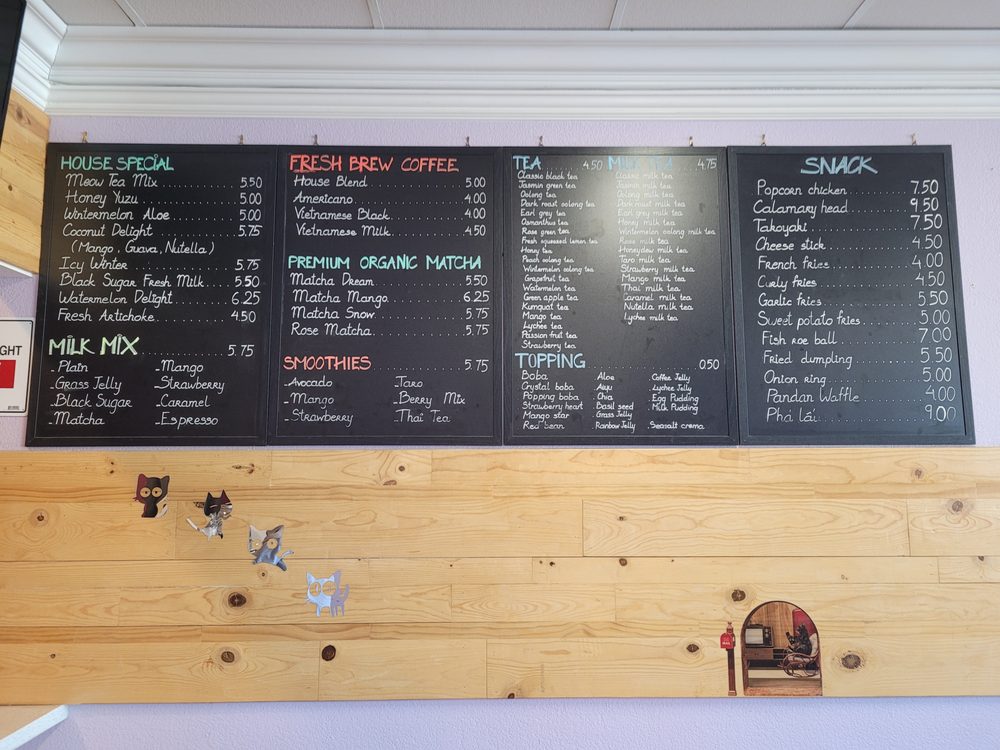 HOUSE SPECIAL
Meow Tea Mix 5.50
Honey Yuzu 5.00
Wintermelon Aloe 5.00
Coconut Delight 5.75
(Mango, Guava, Nutella)
Icy Winter 5.75
Black Sugar Fresh Milk 5.50
Watermelon Delight 6.25
Fresh Artichoke 4.50
MILK MIX 5.75
- Plain - Mango
- Grass Jelly - Strawberry
- Black Sugar - Caramel
- Matcha - Espresso
FRESH BREW COFFEE
House Blend 5.00
Americano 4.00
Vietnamese Black 4.00
Vietnamese Milk 4.50
PREMIUM ORGANIC MATCHA
Matcha Dream 5.50
Matcha Mango 6.25
Matcha Snow 5.75
Rose Matcha 5.75
SMOOTHIES 5.75
- Avocado - Taro
- Mango - Berry Mix
- Strawberry - Thai Tea
TEA 4.50
Classic black tea
Jasmin green tea
Oolong tea
Dark roast oolong tea
Earl grey tea
Osmanthus tea
Rose green tea
Fresh squeezed lemon tea
Honey tea
Peach oolong tea
Wintermelon oolong tea
Grapefruit tea
Watermelon tea
Green apple tea
Kumquat tea
Mango tea
Lychee tea
Passion fruit tea
Strawberry tea
MILK TEA 4.75
Classic milk tea
Jasmin milk tea
Oolong milk tea
Dark roast milk tea
Earl grey milk tea
Honey milk tea
Wintermelon oolong milk tea
Rose milk tea
Honeydew milk tea
Taro milk tea
Strawberry milk tea
Mango milk tea
Thai milk tea
Caramel milk tea
Nutella milk tea
Lychee milk tea
TOPPING 0.50
Boba Aloe Coffee Jelly
Crystal boba Aiyu Lychee Jelly
Popping boba Chia Egg Pudding
Strawberry heart Basil seed Milk Pudding
Mango star Grass Jelly
Red bean Rainbow Jelly Seasalt crema
SNACK
Popcorn chicken 7.50
Calamary head 9.50
Takoyaki 7.50
Cheese stick 4.50
French fries 4.00
Curly fries 4.50
Garlic fries 5.50
Sweet potato fries 5.00
Fish roe ball 7.00
Fried dumpling 5.50
Onion ring 5.00
Pandan Waffle 4.00
Phá lấu 9.00
GHT